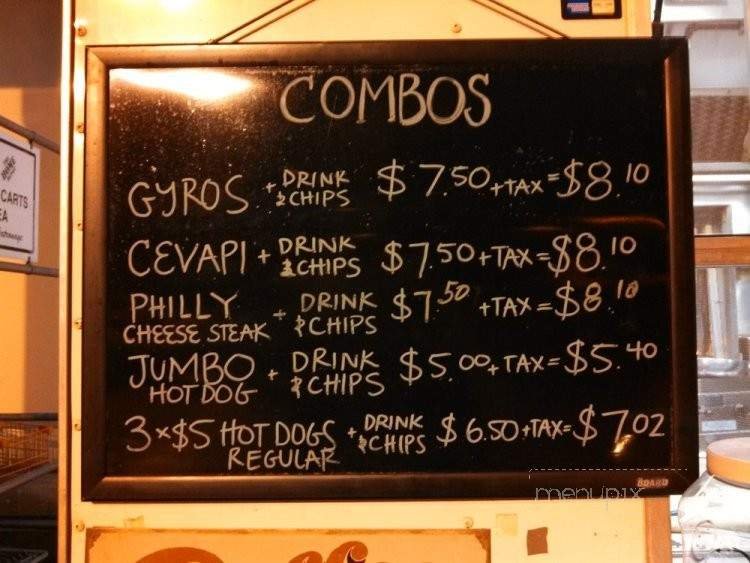 COMBOS
GYROS + DRINK & CHIPS $7.50 + TAX = $8.10
CEVAPI + DRINK & CHIPS $7.50 + TAX = $8.10
PHILLY CHEESE STEAK + DRINK & CHIPS $7.50 + TAX = $8.10
JUMBO HOT DOG + DRINK & CHIPS $5.00 + TAX = $5.40
3 x $5 HOT DOGS REGULAR + DRINK & CHIPS $6.50 + TAX = $7.02
BOARD
menupix
CARTS